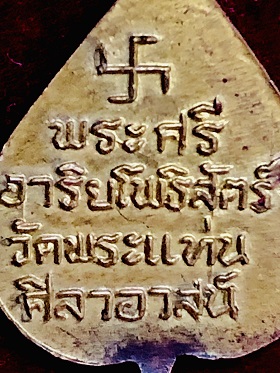 卐
พระศรี
อาริยโพธิสัตร์
วัดพระแท่น
ศิลาอาสน์